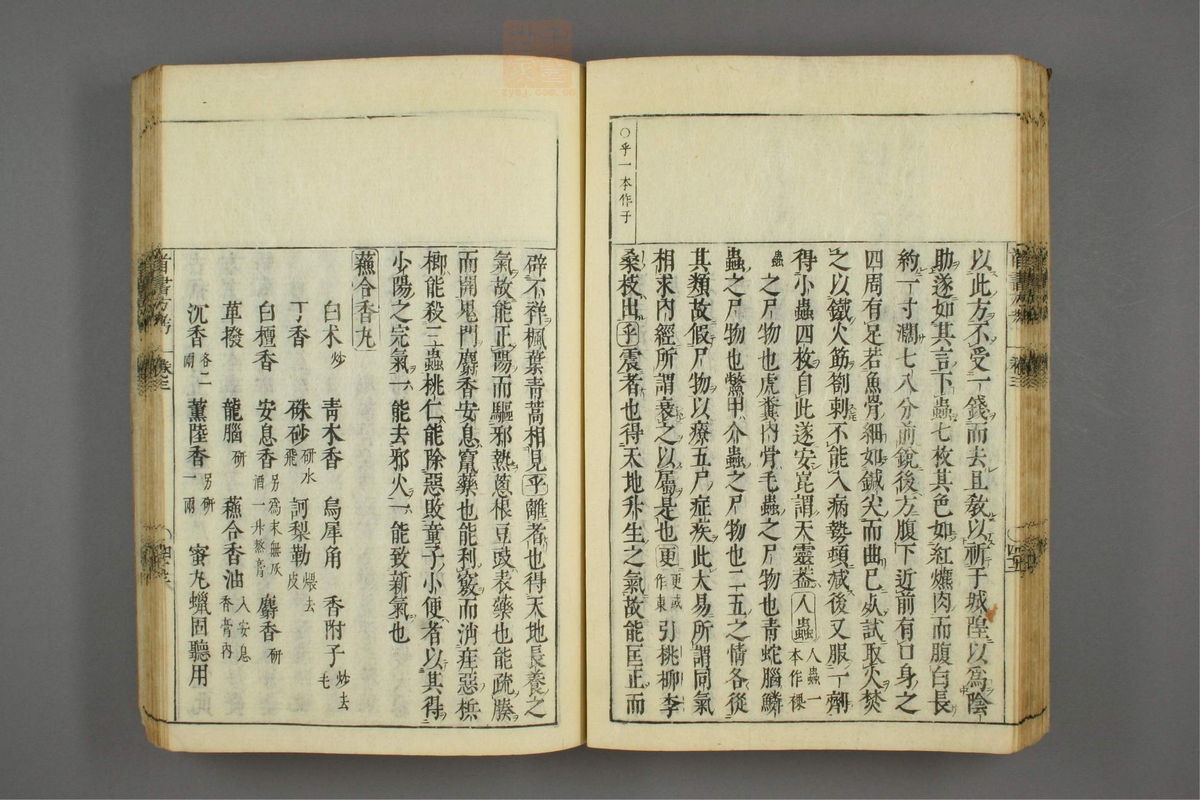 〇乎一本作子
以此方不受一錢而去且教以祈于城隍以為陰
助遂如其言下蟲七枚其色如紅爊肉而腹白長
約一寸濶七八分前銳後方腹下近前有口身之
四周有足若魚骨細如鍼尖而曲已死試取火焚
之以鐵火筯劄刺不能入病勢頓減後又服一劑
得小蟲四枚自此遂安崑謂天靈蓋人蟲人蟲一本作㒩
蟲之尸物也虎糞內骨毛蟲之尸物也青蛇腦鱗
蟲之尸物也鱉甲介蟲之尸物也二五之情各從
其類故假尸物以療五尸症疾此大易所謂同氣
相求內經所謂衰之以屬是也更更或作東引桃柳李
桑枝出乎震者也得天地升生之氣故能匡正而
辟不祥楓葉青蒿相見乎離者也得天地長養之
氣故能正陽而驅邪熱蔥根豆豉表藥也能疏腠
而開鬼門麝香安息竄藥也能利竅而消疰惡梹
榔能殺三蟲桃仁能除惡敗童子小便者以其得
少陽之完氣一能去邪火一能致新氣也
蘓合香丸
白朮炒 青木香 烏犀角 香附子炒去毛
丁香 硃砂研水飛 訶梨勒煨去皮
白檀香 安息香另爲末無灰酒一升熬膏 麝香研
蓽撥 龍腦研 蘓合香油入安息香膏內
沉香各二兩 薰陸香另研一兩 蜜丸蠟固聽用
首書方考
卷三